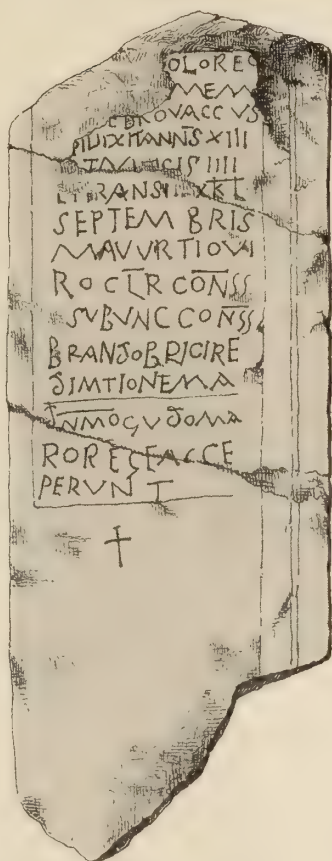 OLOREC
MEM
EBROVACCVS
XIII
CIS IIII
XKL
SEPTEMBRIS
MAVVRTIOVI
ROCLR CONSS
SVBVNC CONSS
BRANDOBRICIRE
DIMTIONEMA
DNMOGVDOMA
ROREGEACCE
PERVNT